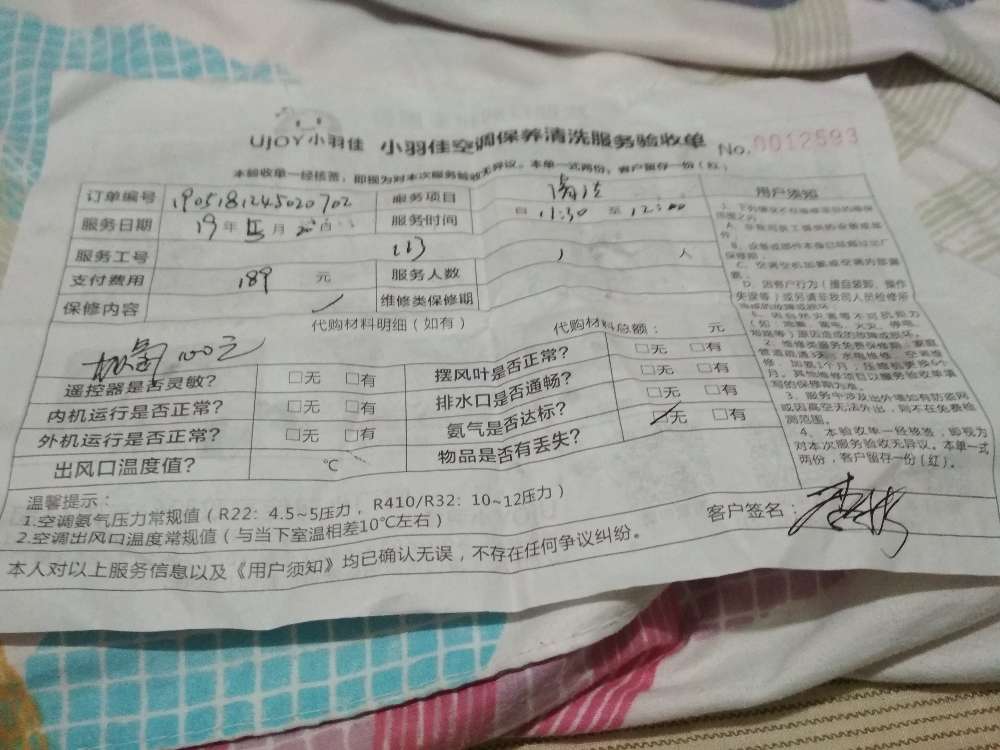 UJOY小羽佳 小羽佳空调保养清洗服务验收单 No.0012593
本验收单一经核签，即视为对本次服务验收无异议。本单一式两份，客户留存一份（红）
订单编号 1905181245020702 服务项目 清洗
服务日期 19年 五月 20日 服务时间 自 11:30 至 12:00
服务工号 113 服务人数 1 人
支付费用 189 元 维修类保修期
保修内容
代购材料明细（如有） 代购材料总额： 元
100元
遥控器是否灵敏？ □无 □有 摆风叶是否正常？ □无 □有
内机运行是否正常？ □无 □有 排水口是否通畅？ □无 □有
外机运行是否正常？ □无 □有 氨气是否达标？ □无 □有
出风口温度值？ ℃ 物品是否有丢失？
温馨提示：
1.空调氨气压力常规值（R22：4.5~5压力，R410/R32：10~12压力）
2.空调出风口温度常规值（与当下室温相差10℃左右）
客户签名：
本人对以上服务信息以及《用户须知》均已确认无误，不存在任何争议纠纷。
用户须知
A、非我司员工提供的安装或部件
B、设备或部件本身已经超过出厂保修期
C、空调空机加氨或空调内部泄
D、因客户行为（擅自装卸、操作
失误等）或另请非我司人员检修所
E、因自然灾害等不可抗力
（如：地震、雷电、火灾、停电、
2、维修类服务免费保修期：家庭
管道疏通3天；水电维修、空调维
月，其他维修项目以服务验收单填
写的保修期为准。
3、服务中涉及出外墙如有防盗网
或因高空无法外出，则不在免费检
测范围。
4、本验收单一经核签，即视为
对本次服务验收无异议。本单一式
两份，客户留存一份（红）。